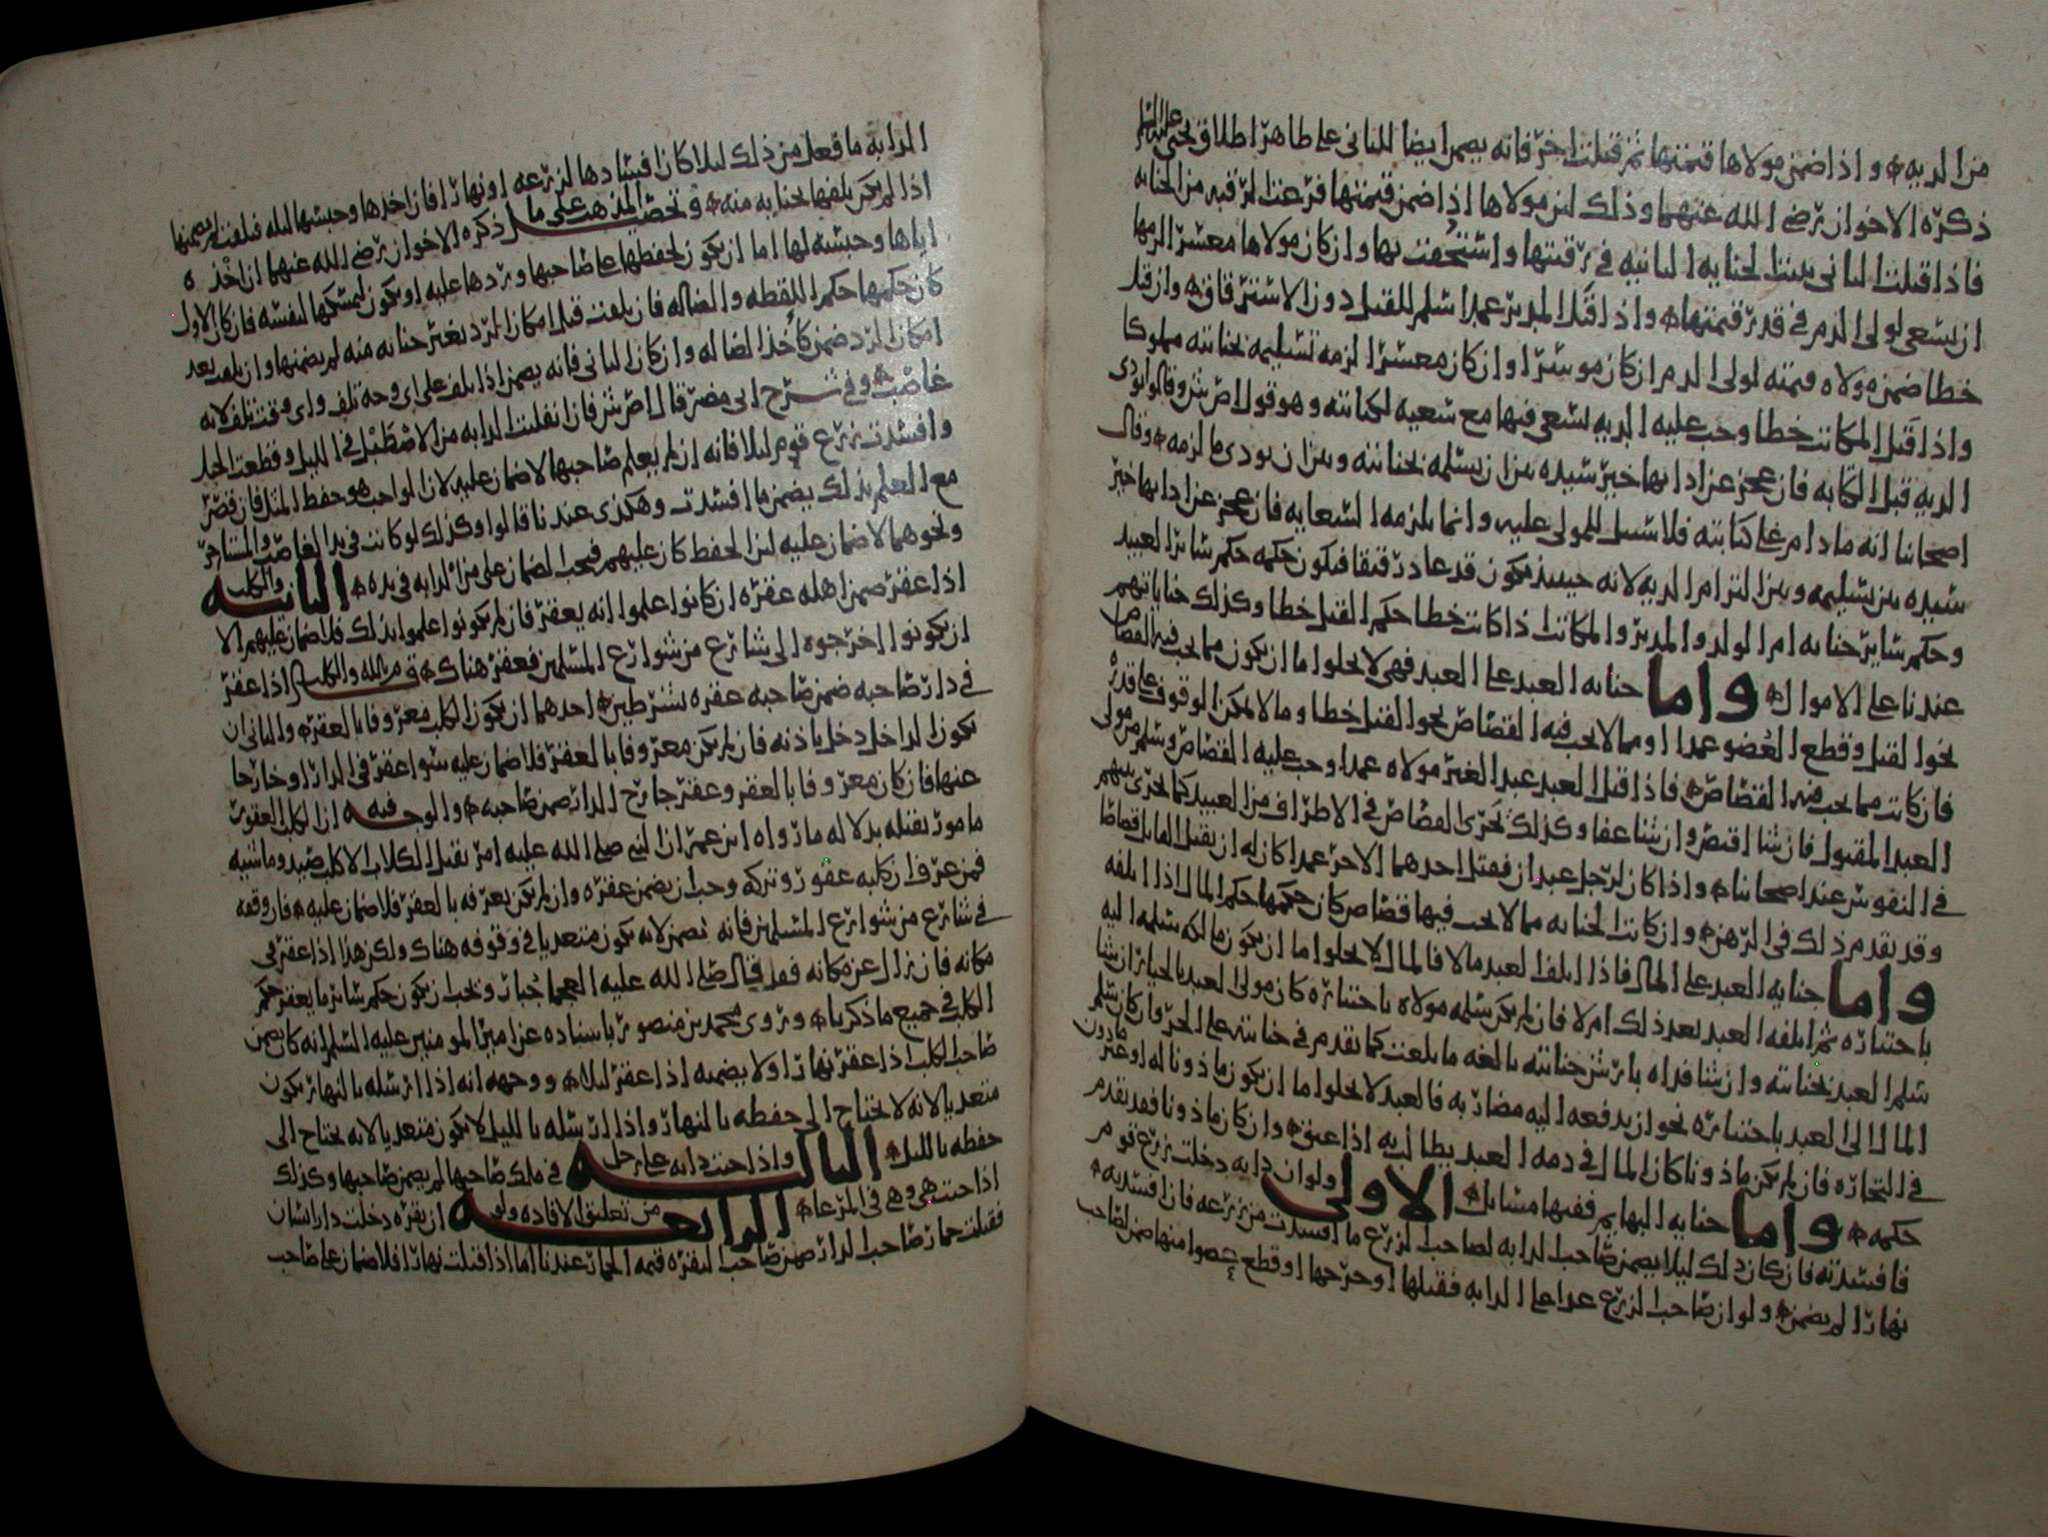 من الدية واذا ضمن مولاها قيمتها ثم قتلت اخر فانه يضمن ايضا للثاني على ظاهر اطلاق يحيى عليه السلم
ذكره الاخوان رضي الله عنهما وذلك لان مولاها اذا ضمن قيمتها فرغت الرقبه من الجنايه
فاذا قتلت الثاني تعلقت الجنايه الثانيه في رقبتها واستحقت بها وان كان مولاها معسرا لزمها
ان تسعى لولي الدم في قدر قيمتها واذا قتل المدبر عمدا سلم للقتل دون الاسترقاق وان قتل
خطا ضمن مولاه قيمته لولي الدم ان كان موسرا وان كان معسرا لزمه تسليمه بجنايته مملوكا
واذا قتل المكاتب خطا وجب عليه الديه يسعى فيها مع سعيه لكتابته وهو قول اص ش وقالوا يودي
الديه قبل الكتابه فان عجز عن ادايها خير سيده بين ان يسلمه بجنايته وبين ان يودي ما لزمه وقال
اصحابنا انه ما دام على كتابته فلا سبيل للمولى عليه وانما يلزمه السعايه فان عجز عن ادايها خير
سيده بين تسليمه وبين التزام الديه لانه حينيذ يكون قد عاد رقيقا فيكون حكمه حكم سائر العبيد
وحكم سائر جنايه ام الولد والمدبر والمكاتب اذا كانت خطا حكم القتل خطا وكذلك جناياتهم
عندنا على الاموال واما جنايه العبد على العبد فهي لا يخلوا اما ان يكون مما يجب فيه القصاص
نحو القتل وقطع العضو عمدا او مما لا يجب فيه القصاص نحو القتل خطا وما لا يمكن الوقوف على قدره
فان كانت مما يجب فيه القصاص فاذا قتل العبد عبد الغير مولاه عمدا وجب عليه القصاص وسلم من مولى
العبد المقتول فان شا اقتص وان شا عفا وكذلك يجري القصاص في الاطراف من العبيد كما يجري بينهم
في النفوس عند اصحابنا واذا كان لرجل عبدان فقتل احدهما الاخر عمدا كان له ان يقتل القاتل قصاصا
وقد تقدم ذلك في الرهن وان كانت الجنايه مما لا يجب فيها قصاص كان حكمها حكم المال اذا اتلفه
واما جنايه العبد على المال فاذا اتلف العبد مالا فالمال لا يخلوا اما ان يكون مالكه سلمه اليه
باختياره ثم اتلفه العبد بعد ذلك ام لا فان لم يكن سلمه مولاه باختياره كان مولى العبد بالخيار ان شا
سلم العبد بجنايته وان شا فداه بارش جنايته بالغه ما بلغت كما تقدم في جنايته على الحر وان كان سلم
المال الى العبد باختياره نحو ان يدفعه اليه مضاربه فالعبد لا يخلوا اما ان يكون ماذونا له او غير ماذون
في التجاره فان لم يكن ماذونا كان المال في ذمه العبد يطالب به اذا عتق وان كان ماذونا فقد تقدم
حكمه واما جنايه البهايم ففيها مسائل الاولى ولو ان دابه دخلت زرع قوم
فافسدته فان كان ذلك ليلا يضمن صاحب الدابه لصاحب الزرع ما افسدت من زرعه فان افسدته
نهارا لم يضمن ولو ان صاحب الزرع عدا على الدابه فقتلها او جرحها او قطع عضوا منها ضمن لصاحب
الدابه ما فعل من ذلك ليلا كان افسادها لزرعه او نهارا فان اخذها وحبسها ليله فتلفت لم يضمنها
اذا لم يكن تلفها بجنايه منه وتحصيل المذهب على ما ذكره الاخوان رضي الله عنهما ان اخذه
اياها وحبسه لها اما ان يكون لحفظها على صاحبها وردها عليه او يكون ليمسكها لنفسه فان كان الاول
كان حكمها حكم اللقطه والضاله فان تلفت قبل امكان الرد بغير جنايه منه لم يضمنها وان تلفت بعد
امكان الرد ضمن كاخذ الضاله وان كان الثاني فانه يضمن اذا تلف على اي وجه تلف واي وقت تلف لانه
غاصب وفي شرح ابي مضر قال اص ش فان انفلتت الدابه من الاصطبل في الليل وقطعت الحبل
وافسدت زرع قوم ليلا فانه ان لم يعلم صاحبها لا ضمان عليه لان الواجب هو حفظ المثل فان قصر
مع العلم بذلك يضمن ما افسدت وهكذى عندنا قالوا وكذلك لو كانت في يد الغاصب والمستاجر
ونحوهما لا ضمان عليه لان الحفظ كان عليهم فيجب الضمان على من الدابه في يده الثانيه والكلب
اذا عقر ضمن اهله عقره ان كانوا علموا انه يعقر فان لم يكونوا علموا بذلك فلا ضمان عليهم الا
ان يكونوا اخرجوه الى شارع من شوارع المسلمين فعقر هناك قال والكلب اذا عقر
في دار صاحبه ضمن صاحبه عقره بشرطين احدهما ان يكون الكلب معروفا بالعقر والثاني ان
يكون الداخل دخل باذنه فان لم يكن معروفا بالعقر فلا ضمان عليه سوا عقر في الدار او خارجا
عنها فان كان معروفا بالعقر وعقر خارج الدار ضمن صاحبه والوجه فيه ان الكلب العقور
مامور بقتله بدلاله ما رواه ابن عمر ان النبي صلى الله عليه امر بقتل الكلاب الا كلب صيد وماشيه
فمن عرف ان كلبه عقور وتركه وجب ان يضمن عقره وان لم يكن يعرفه بالعقر فلا ضمان عليه فان وقفه
في شارع من شوارع المسلمين فانه يضمن لانه يكون متعديا في وقوفه هناك ولكن هذا اذا عقر في
مكانه فان زال عن مكانه فقد قال صلى الله عليه العجما جبار ويجب ان يكون حكم سائر ما يعقر حكم
الكلب في جميع ما ذكرنا وروى محمد بن منصور باسناده عن امير المومنين عليه السلم انه كان يضمن
صاحب الكلب اذا عقر نهارا ولا يضمنه اذا عقر ليلا ووجهه انه اذا ارسله بالنهار يكون
متعديا لانه لا يحتاج الى حفظه بالنهار واذا ارسله بالليل لا يكون متعديا لانه يحتاج الى
حفظه بالليل الثالثه واذا جنت دابه على رجل في ملك صاحبها لم يضمن صاحبها وكذلك
اذا جنت هي وهي في المرعا الرابعه من تعليق الافاده ولو ان بقره دخلت دار انسان
فقتلت حمار صاحب الدار ضمن صاحب البقره قيمه الحمار عندنا اما اذا قتلت نهارا فلا ضمان على صاحب